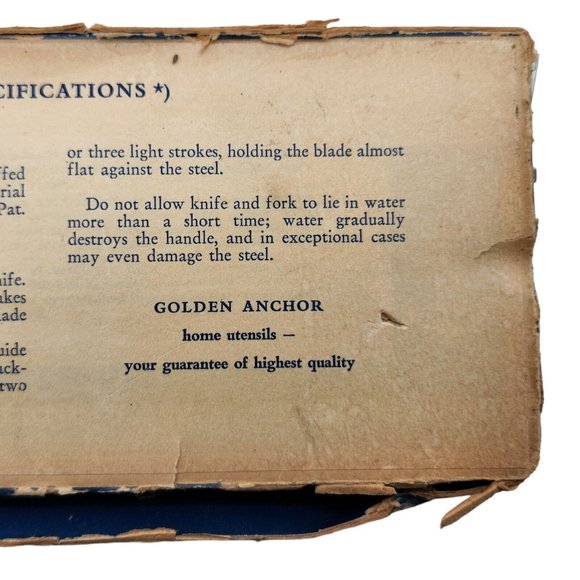 CIFICATIONS *)
rial
Pat.
ife.
akes
uide
ack-
two
or three light strokes, holding the blade almost
flat against the steel.
Do not allow knife and fork to lie in water
more than a short time; water gradually
destroys the handle, and in exceptional cases
may even damage the steel.
GOLDEN ANCHOR
home utensils —
your guarantee of highest quality